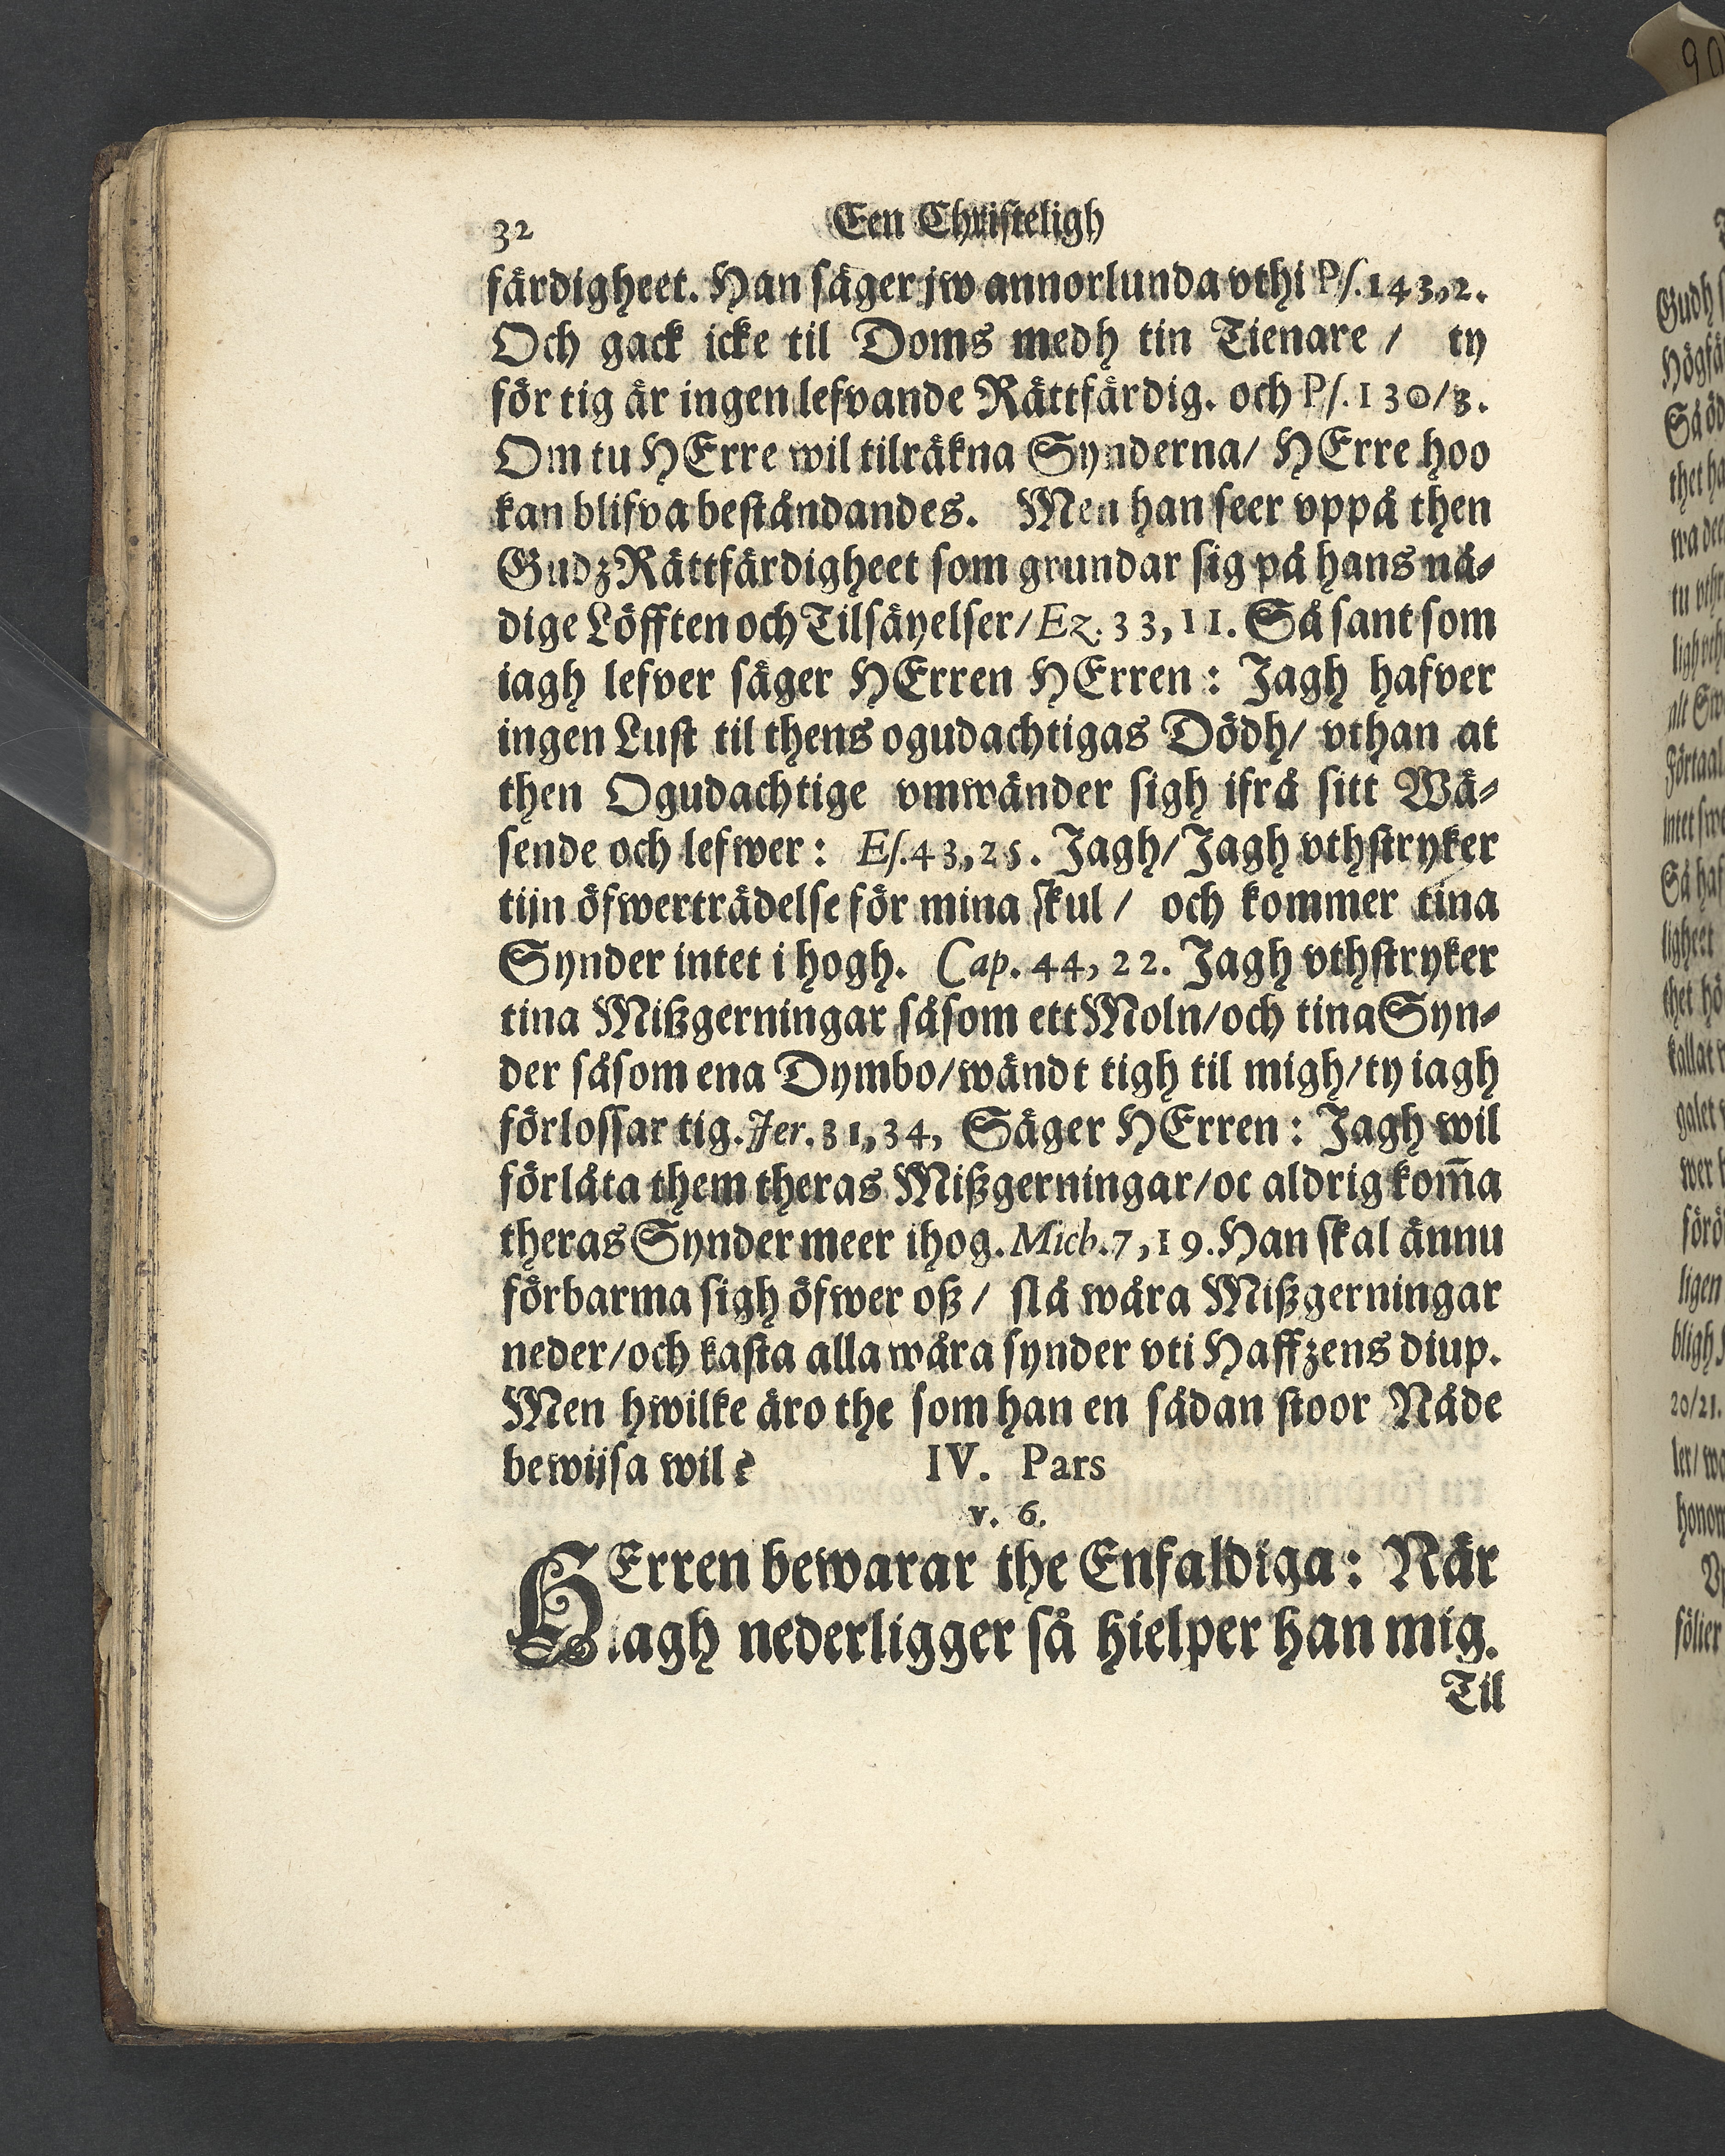 32 Een Christeligh
färdigheet. Han säger jw annorlunda vthi Ps. 143,2.
Och gack icke til Doms medh tin Tienare / ty
för tig är ingen lefvande Rättfärdig. och Ps. 130/3.
Om tu HErre wil tilräkna Synderna/ HErre hoo
kan blifva beståndandes. Men han seer vppå then
Gudz Rättfärdigheet som grundar sig på hans nå-
dige Löfften och Tilsäyelser/ Ez. 33, 11. Så sant som
iagh lefver säger HErren HErren : Jagh hafver
ingen Lust til thens ogudachtigas Dödh/ vthan at
then Ogudachtige vmwänder sigh ifrå sitt Wä-
sende och lefwer : Es. 43,25. Jagh/ Jagh vthstryker
tijn öfwerträdelse för mina skul / och kommer tina
Synder intet i hogh. Cap. 44, 22. Jagh vthstryker
tina Mißgerningar såsom ett Moln/ och tina Syn-
der såsom ena Dymbo/ wändt tigh til migh/ ty iagh
förlossar tig. Jer. 31,34, Säger HErren : Jagh wil
förlåta them theras Mißgerningar/ oc aldrig kom̄a
theras Synder meer ihog. Mich. 7,19. Han skal ännu
förbarma sigh öfwer oß / slå wåra Mißgerningar
neder/ och kasta alla wåra synder vti Haffzens diup.
Men hwilke äro the som han en sådan stoor Nåde
bewijsa wil ? IV. Pars
v. 6.
HErren bewarar the Enfaldiga : När
iagh nederligger så hielper han mig.
Til